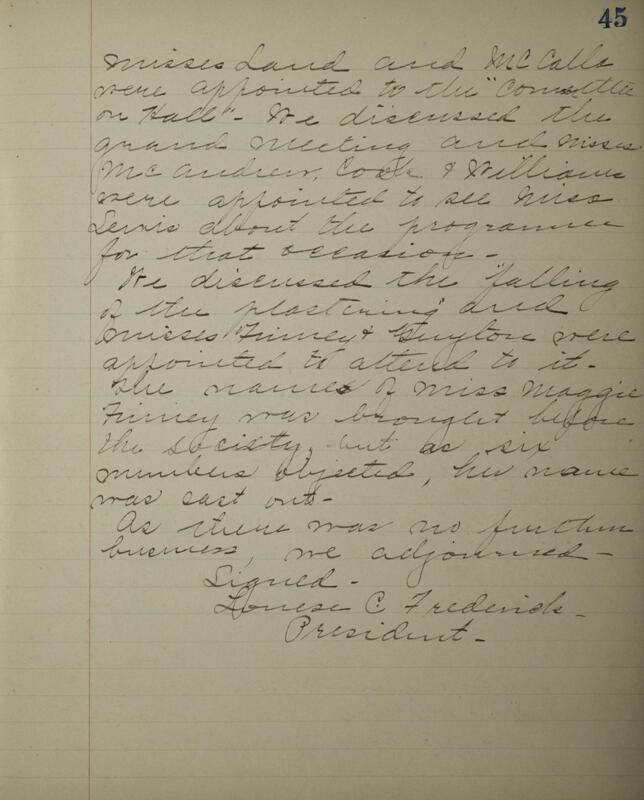 45
Misses Land and McCalla
were appointed to the "Committee
on Hall" - We discussed the
grand meeting and Misses
McAndrew, Cook & Williams
were appointed to see Miss
Lewis about the programme
for that occasion -
We discussed the "falling
of the plastering" and
Misses Finney & Guyton were
appointed to attend to it -
The names of Miss Maggie
Finney was brought before
the society, but as six
members objected, her name
was cast out -
As there was no further
business, we adjourned -
Signed -
Louese C Frederick -
President -